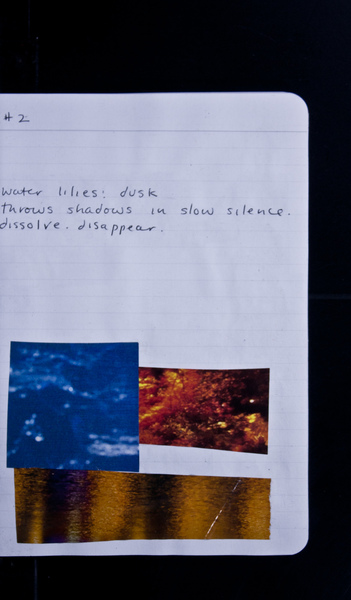 #2
water lilies: dusk
throws shadows in slow silence.
dissolve. disappear.